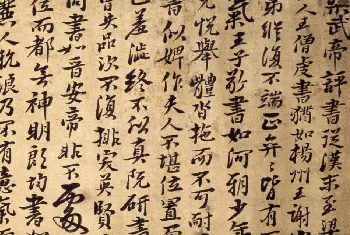 梁武帝評書從漢末至梁
人王僧虔書猶如楊州王謝
弟縱復不端正奕奕皆有
氣王子敬書如河朔少年
充悅舉體沓拖而不可耐
書似婢作夫人不堪位置
羞澀終不似真阮研書
失品次不復排突英賢
尚書如晉安帝非不處
位而都無神明均書
人抗浪乃不有意氣